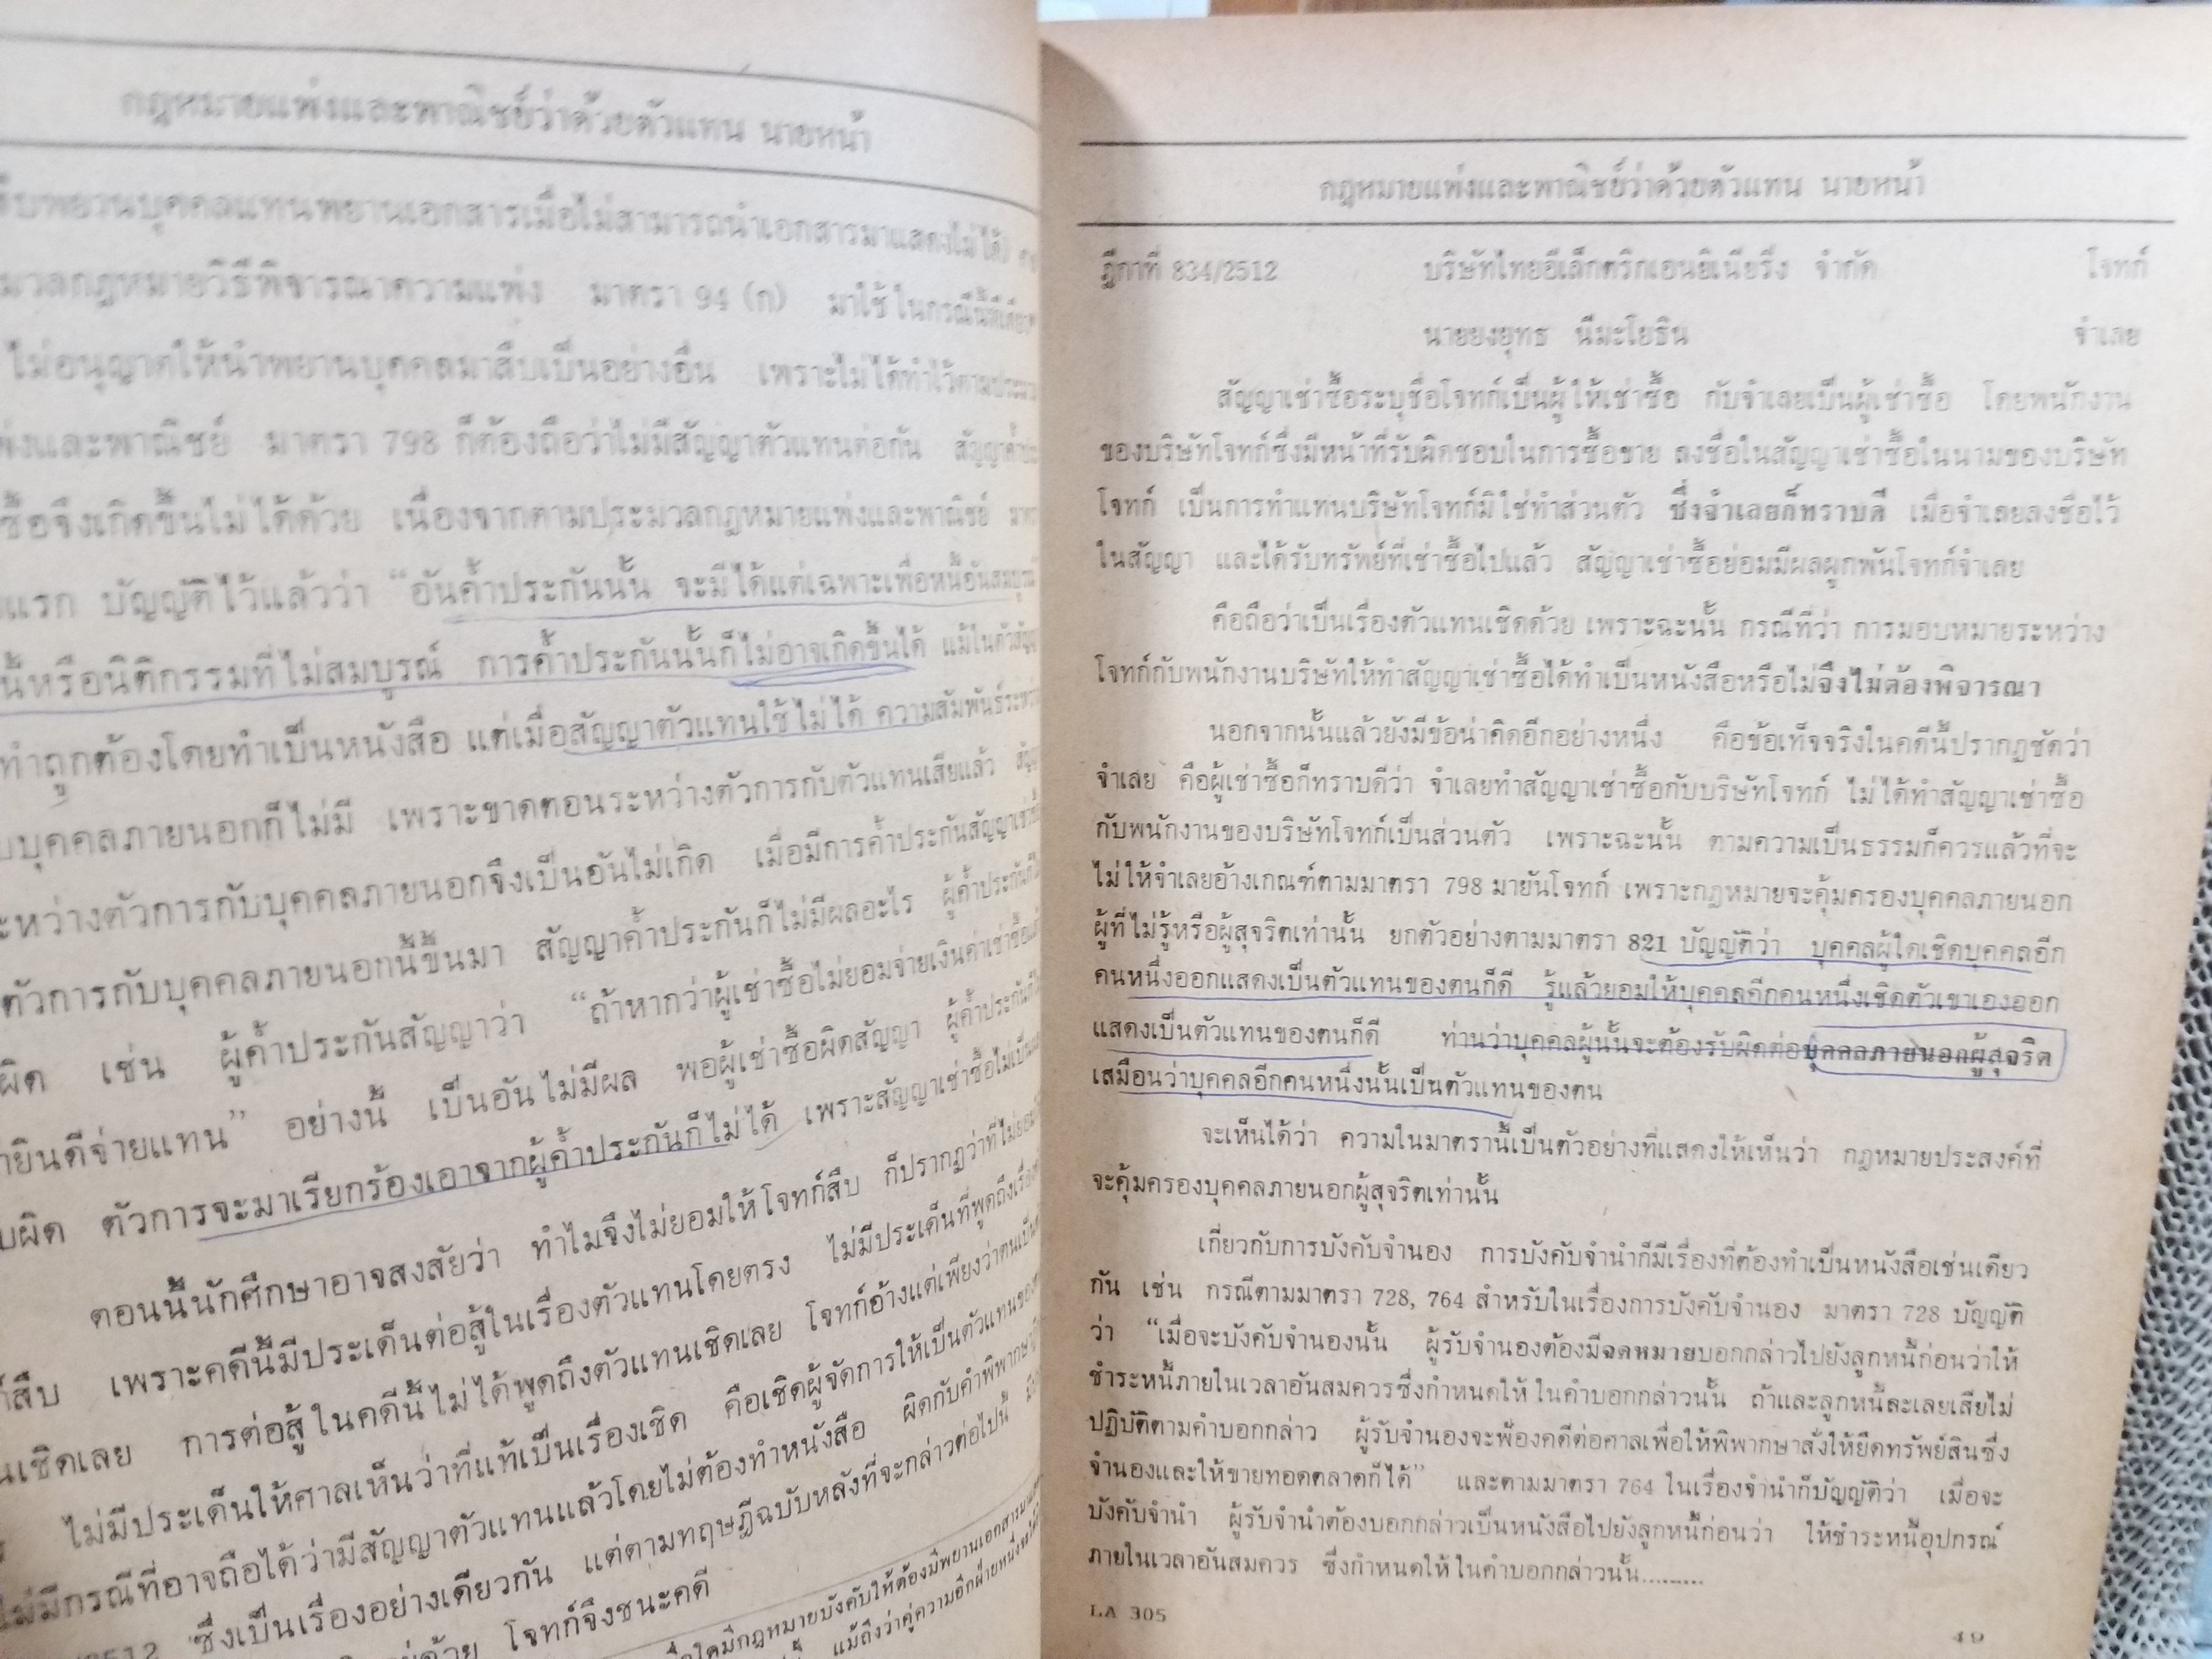 กฎหมายแพ่งและพาณิชย์ว่าด้วยตัวแทน นายหน้า
สืบพยานบุคคลแทนพยานเอกสารเมื่อไม่สามารถนำเอกสารมาแสดงไม่ได้)
มวลกฎหมายวิธีพิจารณาความแพ่ง มาตรา 94 (ก) มาใช้ในกรณีนี้
ไม่อนุญาตให้นำพยานบุคคลมาสืบเป็นอย่างอื่น เพราะไม่ได้ทำไว้ตามประมวล
พ่งและพาณิชย์ มาตรา 798 ก็ต้องถือว่าไม่มีสัญญาตัวแทนต่อกัน
ซื้อจึงเกิดขึ้นไม่ได้ด้วย เนื่องจากตามประมวลกฎหมายแพ่งและพาณิชย์
แรก บัญญัติไว้แล้วว่า “อันค้ำประกันนั้น จะมีได้แต่เฉพาะเพื่อหนี้อันสมบูรณ์
นี้หรือนิติกรรมที่ไม่สมบูรณ์ การค้ำประกันนั้นก็ไม่อาจเกิดขึ้นได้ แม้ในตัวสัญญา
ทำถูกต้องโดยทำเป็นหนังสือ แต่เมื่อสัญญาตัวแทนใช้ไม่ได้ ความสัมพันธ์ระหว่าง
บุคคลภายนอกก็ไม่มี เพราะขาดตอนระหว่างตัวการกับตัวแทนเสียแล้ว
ะหว่างตัวการกับบุคคลภายนอกจึงเป็นอันไม่เกิด เมื่อมีการค้ำประกันสัญญาเช่าซื้อ
ตัวการกับบุคคลภายนอกนี้ขึ้นมา สัญญาค้ำประกันก็ไม่มีผลอะไร ผู้ค้ำประกันก็ไม่
ผิด เช่น ผู้ค้ำประกันสัญญาว่า “ถ้าหากว่าผู้เช่าซื้อไม่ยอมจ่ายเงินค่าเช่าซื้อแล้ว
ายินดีจ่ายแทน” อย่างนี้ เป็นอันไม่มีผล พอผู้เช่าซื้อผิดสัญญา ผู้ค้ำประกันก็ไม่
บผิด ตัวการจะมาเรียกร้องเอาจากผู้ค้ำประกันก็ไม่ได้ เพราะสัญญาเช่าซื้อไม่เป็นผล
ตอนนี้นักศึกษาอาจสงสัยว่า ทำไมจึงไม่ยอมให้โจทก์สืบ ก็ปรากฏว่าที่ไม่ยอม
ก์สืบ เพราะคดีนี้มีประเด็นต่อสู้ในเรื่องตัวแทนโดยตรง ไม่มีประเด็นที่พูดถึงเรื่อง
นเชิดเลย การต่อสู้ในคดีนี้ไม่ได้พูดถึงตัวแทนเชิดเลย โจทก์อ้างแต่เพียงว่าตนเป็น
ไม่มีประเด็นให้ศาลเห็นว่าที่แท้เป็นเรื่องเชิด คือเชิดผู้จัดการให้เป็นตัวแทนของ
ไม่มีกรณีที่อาจถือได้ว่ามีสัญญาตัวแทนแล้วโดยไม่ต้องทำหนังสือ ผิดกับคำพิพากษา
2512 ซึ่งเป็นเรื่องอย่างเดียวกัน แต่ตามทฤษฎีฉบับหลังที่จะกล่าวต่อไปนี้
ด้วย โจทก์จึงชนะคดี
มีกฎหมายบังคับให้ต้องมีพยานเอกสารมาแสดง
แม้ถึงว่าคู่ความอีกฝ่ายหนึ่ง
กฎหมายแพ่งและพาณิชย์ว่าด้วยตัวแทน นายหน้า
ฎีกาที่ 834/2512 บริษัทไทยอีเล็กตริกเอนยิเนียริง จำกัด โจทก์
นายยงยุทธ นีมะโยธิน จำเลย
สัญญาเช่าซื้อระบุชื่อโจทก์เป็นผู้ให้เช่าซื้อ กับจำเลยเป็นผู้เช่าซื้อ โดยพนักงาน
ของบริษัทโจทก์ซึ่งมีหน้าที่รับผิดชอบในการซื้อขาย ลงชื่อในสัญญาเช่าซื้อในนามของบริษัท
โจทก์ เป็นการทำแทนบริษัทโจทก์มิใช่ทำส่วนตัว ซึ่งจำเลยก็ทราบดี เมื่อจำเลยลงชื่อไว้
ในสัญญา และได้รับทรัพย์ที่เช่าซื้อไปแล้ว สัญญาเช่าซื้อย่อมมีผลผูกพันโจทก์จำเลย
คือถือว่าเป็นเรื่องตัวแทนเชิดด้วย เพราะฉะนั้น กรณีที่ว่า การมอบหมายระหว่าง
โจทก์กับพนักงานบริษัทให้ทำสัญญาเช่าซื้อได้ทำเป็นหนังสือหรือไม่จึงไม่ต้องพิจารณา
นอกจากนั้นแล้วยังมีข้อน่าคิดอีกอย่างหนึ่ง คือข้อเท็จจริงในคดีนี้ปรากฏชัดว่า
จำเลย คือผู้เช่าซื้อก็ทราบดีว่า จำเลยทำสัญญาเช่าซื้อกับบริษัทโจทก์ ไม่ได้ทำสัญญาเช่าซื้อ
กับพนักงานของบริษัทโจทก์เป็นส่วนตัว เพราะฉะนั้น ตามความเป็นธรรมก็ควรแล้วที่จะ
ไม่ให้จำเลยอ้างเกณฑ์ตามมาตรา 798 มายันโจทก์ เพราะกฎหมายจะคุ้มครองบุคคลภายนอก
ผู้ที่ไม่รู้หรือผู้สุจริตเท่านั้น ยกตัวอย่างตามมาตรา 821 บัญญัติว่า บุคคลผู้ใดเชิดบุคคลอีก
คนหนึ่งออกแสดงเป็นตัวแทนของตนก็ดี รู้แล้วยอมให้บุคคลอีกคนหนึ่งเชิดตัวเขาเองออก
แสดงเป็นตัวแทนของตนก็ดี ท่านว่าบุคคลผู้นั้นจะต้องรับผิดต่อบุคคลภายนอกผู้สุจริต
เสมือนว่าบุคคลอีกคนหนึ่งนั้นเป็นตัวแทนของตน
จะเห็นได้ว่า ความในมาตรานี้เป็นตัวอย่างที่แสดงให้เห็นว่า กฎหมายประสงค์ที่
จะคุ้มครองบุคคลภายนอกผู้สุจริตเท่านั้น
เกี่ยวกับการบังคับจำนอง การบังคับจำนำก็มีเรื่องที่ต้องทำเป็นหนังสือเช่นเดียว
กัน เช่น กรณีตามมาตรา 728, 764 สำหรับในเรื่องการบังคับจำนอง มาตรา 728 บัญญัติ
ว่า “เมื่อจะบังคับจำนองนั้น ผู้รับจำนองต้องมีจดหมายบอกกล่าวไปยังลูกหนี้ก่อนว่าให้
ชำระหนี้ภายในเวลาอันสมควรซึ่งกำหนดให้ในคำบอกกล่าวนั้น ถ้าและลูกหนี้ละเลยเสียไม่
ปฏิบัติตามคำบอกกล่าว ผู้รับจำนองจะฟ้องคดีต่อศาลเพื่อให้พิพากษาสั่งให้ยึดทรัพย์สินซึ่ง
จำนองและให้ขายทอดตลาดก็ได้” และตามมาตรา 764 ในเรื่องจำนำก็บัญญัติว่า เมื่อจะ
บังคับจำนำ ผู้รับจำนำต้องบอกกล่าวเป็นหนังสือไปยังลูกหนี้ก่อนว่า ให้ชำระหนี้อุปกรณ์
ภายในเวลาอันสมควร ซึ่งกำหนดให้ในคำบอกกล่าวนั้น.........
LA 305
49